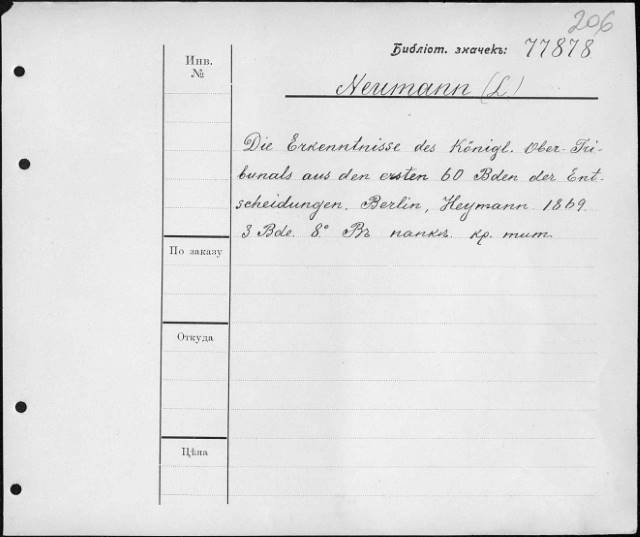 206
Библіот. значекъ: 77878
Инв.
№
Neumann (L.)
Die Erkenntnisse des Königl. Ober-Tri-
bunals aus den ersten 60 Bden der Ent-
scheidungen. Berlin, Heymann 1869
3 Bde. 8° Въ папкѣ. кр. тит.
По заказу
Откуда
Цѣна